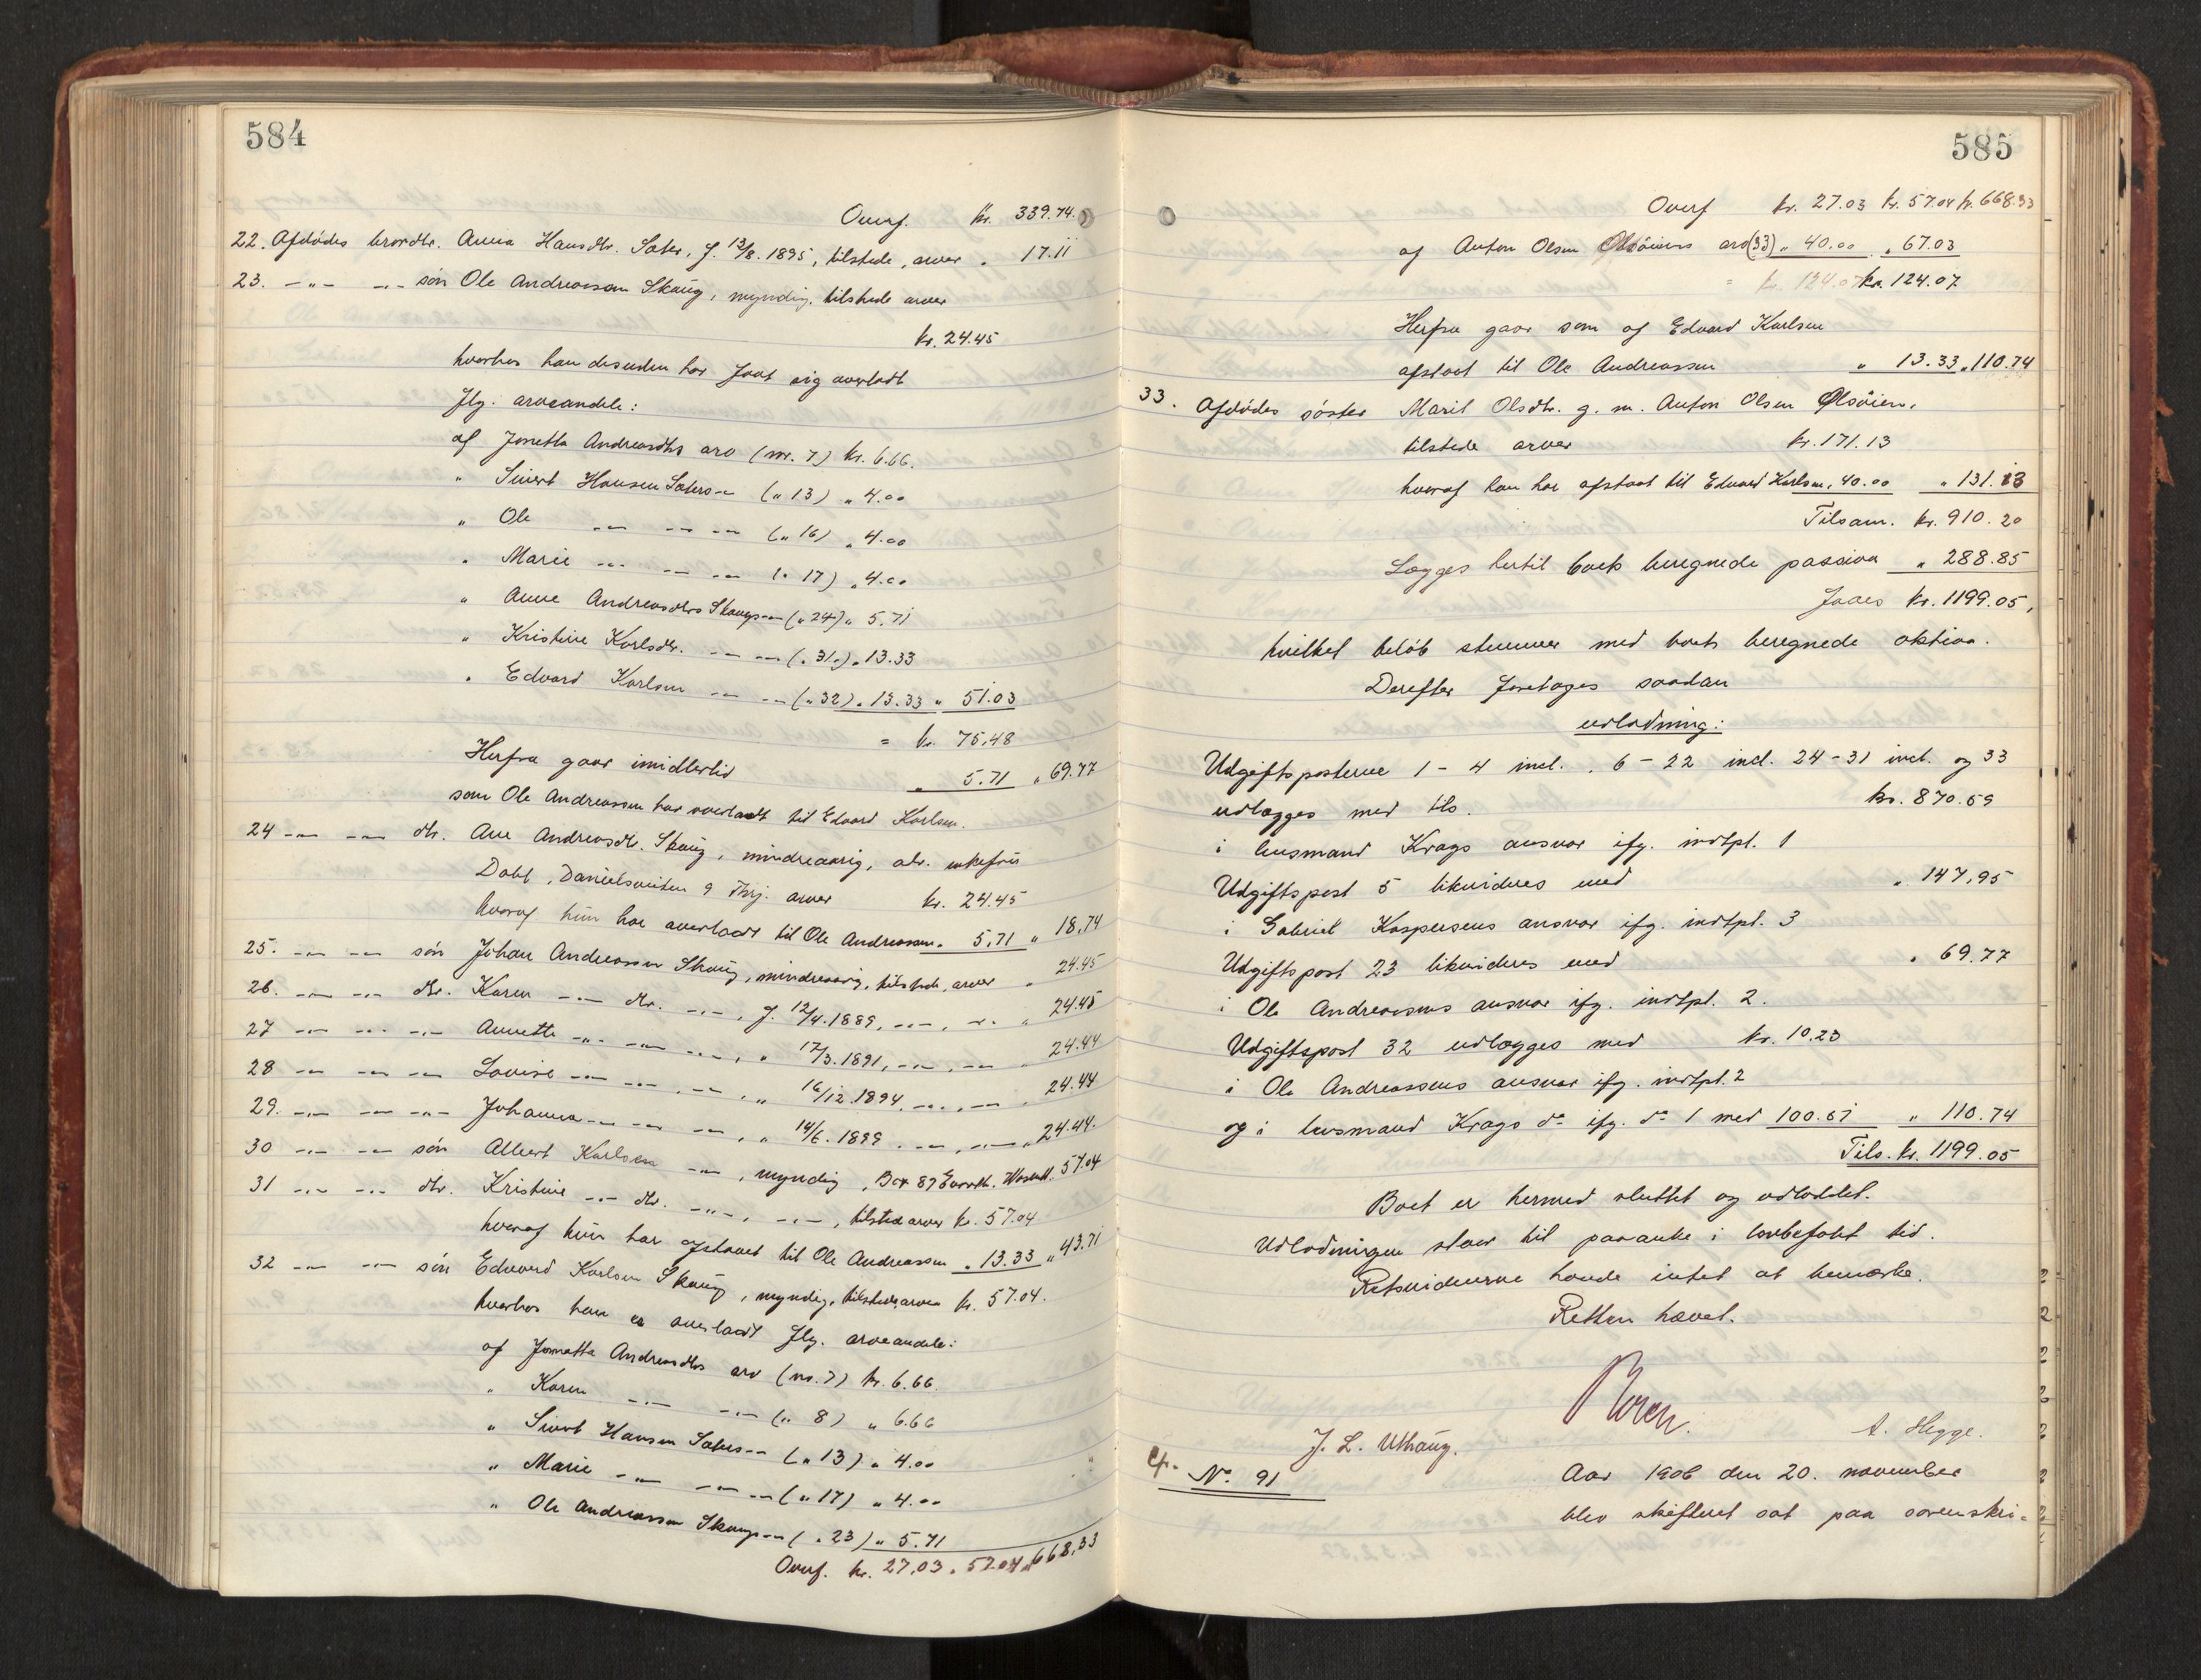 584
Overf. kr. 339.74.
22. Afdødes brordtr. Anna Hansdtr. Sæter, f. 13/8. 1895, tilstede, arver " 17.11
23. -"- -"- søn Ole Andreassen Skaug, myndig, tilstede arver
kr. 24.45
hvorhos han desuden har faat sig overladt
flg. arveandele:
af Jonetta Andreasdtrs arv (nr. 7) kr. 6.66.
" Sivert Hansen Sæters -"- (" 13) " 4.00
" Ole -"- -"- -"- (" 16) " 4.00
" Marie -"- -"- -"- (" 17) " 4.00
" Anne Andreasdtrs Skaugs -"- (" 24) " 5.71
" Kristine Karlsdtr. -"- -"- (" 31.) " 13.33
" Edvard Karlsen -"- -"- (" 32) " 13.33 " 51.03
= kr. 75,48
Herfra gaar imidlertid " 5.71 " 69.77
som Ole Andreassen har overladt til Edvard Karlsen.
24 -"- -"- dtr. Ane Andreasdtr. Skaug, mindreaarig, adr. enkefru
Dahl, Danielsveiten 9 Thj. arver kr. 24.45
hvoraf hun har overladt til Ole Andreassen " 5,71 " 18,74
25. -"- -"- søn Johan Andreassen Skaug, mindreaarig, tilstede, arver " 24.45
26. -"- -"- dtr. Karen -"- dtr. -"-, f. 12/4. 1889, -"-, -"- " 24.45
27 -"- -"- -"- Annette -"- -"- -"-, " 17/3. 1891, -"-, -"- " 24.44
28 -"- -"- -"- Lovise -"- -"-, -"-, " 16/12. 1894, -"-, -"- " 24.44
29. -"- -"- -"- Johanna -"- -"- -"-, " 14/6. 1899. -"-, -"- " 24.44.
30 -"- -"- søn Albert Karlsen -"-, myndig, Box 87 57.04
31 -"- -"- dtr. Kristine -"- dtr. -"-, -"-, tilstede arver kr. 57.04
hvoraf hun har afstaaet til Ole Andreassen " 13.33 " 43.71
32 -"- -"- søn Edvard Karlsen Skaug, myndig, tilstede, arver kr. 57.04.
hvorhos han er overladt flg. arveandele:
af Jonetta Andreasdtrs arv (nr. 7) kr. 6.66.
" Karen -"- -"- (" 8) " 6.66
" Sivert Hansen Sæters -"- (" 13) " 4.00
" Marie -"- -"- -"- (" 17) " 4.00
" Ole Andreassen Skaugs -"- (" 23) " 5.71
Overf. kr. 27,03 " 57.04 " 668,33
585
Overf kr. 27.03 kr. 57.04 kr. 668.33
af Anton Olsen Ølsøiens arv (33) " 40.00 " 67.03
= kr. 124.07 kr. 124.07
Herfra gaar som af Edvard Karlsen
afstaat til Ole Andreassen " 13.33 " 110.74
33. Afdødes søster Marit Olsdtr. g. m. Anton Olsen Ølsøien,
tilstede arver kr. 171.13
hvoraf han har afstaat til Edvard Karlsen " 40.00 " 131.13
Tilsam. kr. 910.20
Lægges hertil boets beregnede passiva " 288.85
Faaes kr. 1199.05,
hvilket beløb stemmer med boets beregnede aktiva.
Derefter foretages saadan
udlodning:
Udgiftsposterne 1 - 4 incl. , 6 - 22 incl. 24 - 31 incl. og 33
udlægges med tils. kr. 870.59
i lensmand Krags ansvar ifg. indtpt. 1
Udgiftspost 5 likvideres med " 147,95
i Gabriel Kaspersens ansvar ifg. indtpt. 3
Udgiftspost 23 likvideres med " 69.77
i Ole Andreassens ansvar ifg. indtpt. 2.
Udgiftspost 32 udlægges med kr. 10.23
i Ole Andreassens ansvar ifg. indtpt. 2
og i lensmand Krags do ifg. do 1 med 100.51 " 110.74
Tils. kr. 1199.05
Boet er hermed sluttet og udloddet.
Udlodningen staar til paaanke i lovbefalet tid.
Retsvidnerne havde intet at bemærke.
Retten hævet.
J. L. Uthaug. A. Hegge.
No. 91
Aar 1906 den 20. november
blev skifteret sat paa sorenskri-